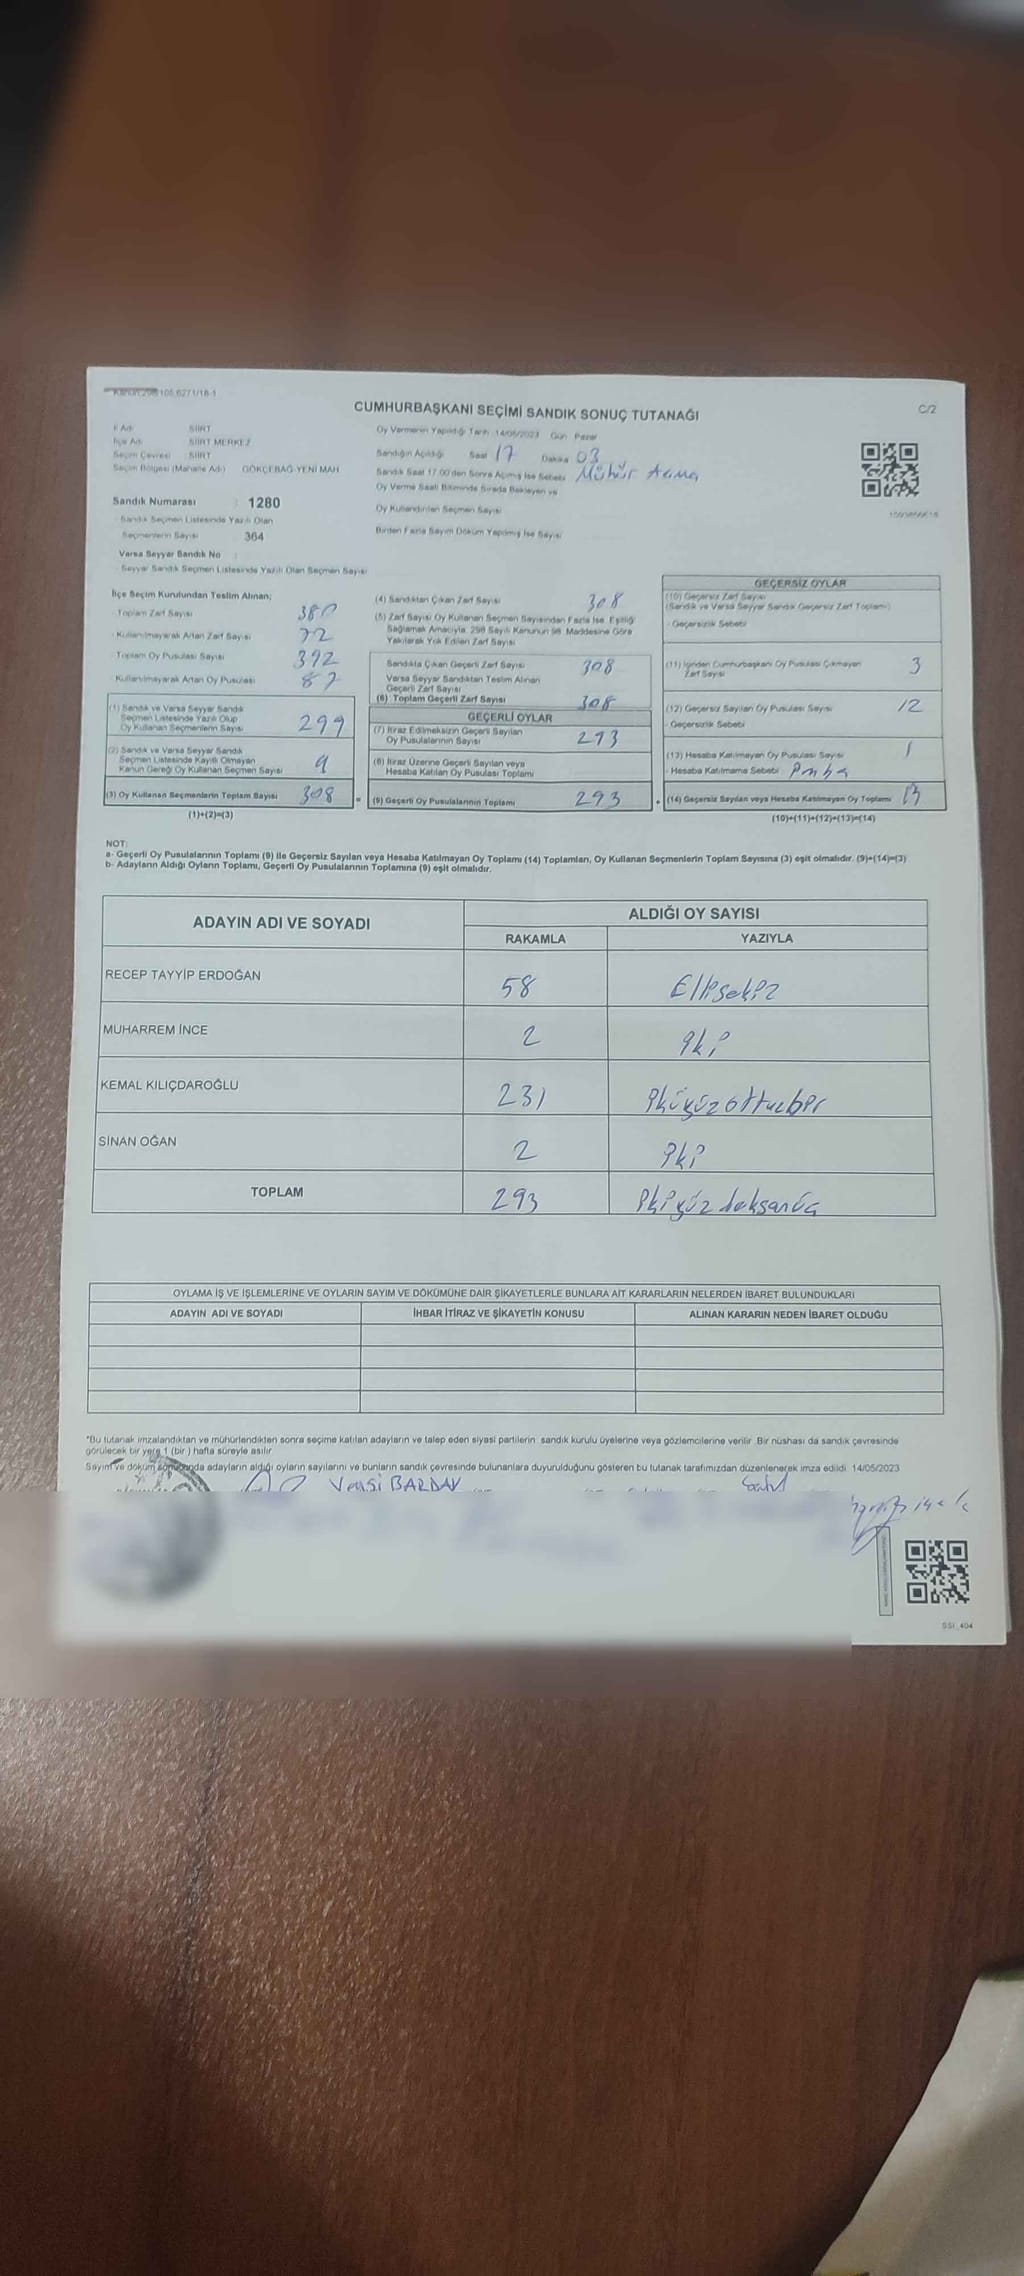 CUMHURBAŞKANI SEÇİMİ SANDIK SONUÇ TUTANAĞI
C/2
İl Adı SİİRT
İlçe Adı SİİRT MERKEZ
Seçim Çevresi SİİRT
Seçim Bölgesi (Mahalle Adı) GÖKÇEBAĞ-YENİ MAH
Sandık Numarası : 1280
Sandık Seçmen Listesinde Yazılı Olan
Seçmenlerin Sayısı 364
Varsa Seyyar Sandık No
Seyyar Sandık Seçmen Listesinde Yazılı Olan Seçmen Sayısı
Oy Vermenin Yapıldığı Tarih 14/05/2023 Gün Pazar
Sandığın Açıldığı Saat 17 Dakika 03
Sandık Saat 17.00'den Sonra Açılmış İse Sebebi Mühür Açma
Oy Verme Saati Bitiminde Sırada Bekleyen ve
Oy Kullandırılan Seçmen Sayısı
Birden Fazla Sayım Döküm Yapılmış İse Sayısı
İlçe Seçim Kurulundan Teslim Alınan;
Toplam Zarf Sayısı 380
Kullanılmayarak Artan Zarf Sayısı 72
Toplam Oy Pusulası Sayısı 392
Kullanılmayarak Artan Oy Pusulası
(1) Sandık ve Varsa Seyyar Sandık
Seçmen Listesinde Yazılı Olup
Oy Kullanan Seçmenlerin Sayısı 299
(2) Sandık ve Varsa Seyyar Sandık
Seçmen Listesinde Kayıtlı Olmayan
Kanun Gereği Oy Kullanan Seçmen Sayısı 9
(3) Oy Kullanan Seçmenlerin Toplam Sayısı 308
(1)+(2)=(3)
(4) Sandıktan Çıkan Zarf Sayısı 308
(5) Zarf Sayısı Oy Kullanan Seçmen Sayısından Fazla İse, Eşitliği
Sağlamak Amacıyla, 298 Sayılı Kanunun 98. Maddesine Göre
Yakılarak Yok Edilen Zarf Sayısı
Sandıkta Çıkan Geçerli Zarf Sayısı 308
Varsa Seyyar Sandıktan Teslim Alınan
Geçerli Zarf Sayısı
(6) Toplam Geçerli Zarf Sayısı 308
GEÇERLİ OYLAR
(7) İtiraz Edilmeksizin Geçerli Sayılan
Oy Pusulalarının Sayısı 293
(8) İtiraz Üzerine Geçerli Sayılan veya
Hesaba Katılan Oy Pusulası Toplamı
= (9) Geçerli Oy Pusulalarının Toplamı 293
GEÇERSİZ OYLAR
(10) Geçersiz Zarf Sayısı
(Sandık ve Varsa Seyyar Sandık Geçersiz Zarf Toplamı)
- Geçersizlik Sebebi
(11) İçinden Cumhurbaşkanı Oy Pusulası Çıkmayan
Zarf Sayısı 3
(12) Geçersiz Sayılan Oy Pusulası Sayısı 12
- Geçersizlik Sebebi
(13) Hesaba Katılmayan Oy Pusulası Sayısı 1
- Hesaba Katılmama Sebebi
+ (14) Geçersiz Sayılan veya Hesaba Katılmayan Oy Toplamı
(10)+(11)+(12)+(13)=(14)
NOT:
a- Geçerli Oy Pusulalarının Toplamı (9) ile Geçersiz Sayılan veya Hesaba Katılmayan Oy Toplamı (14) Toplamları, Oy Kullanan Seçmenlerin Toplam Sayısına (3) eşit olmalıdır. (9)+(14)=(3)
b- Adayların Aldığı Oyların Toplamı, Geçerli Oy Pusulalarının Toplamına (9) eşit olmalıdır.
ADAYIN ADI VE SOYADI ALDIĞI OY SAYISI
RAKAMLA YAZIYLA
RECEP TAYYİP ERDOĞAN 58 Ellisekiz
MUHARREM İNCE 2 iki
KEMAL KILIÇDAROĞLU 231 ikiyüzottuzbir
SİNAN OĞAN 2 iki
TOPLAM 293 ikiyüz doksanüç
OYLAMA İŞ VE İŞLEMLERİNE VE OYLARIN SAYIM VE DÖKÜMÜNE DAİR ŞİKAYETLERLE BUNLARA AİT KARARLARIN NELERDEN İBARET BULUNDUKLARI
ADAYIN ADI VE SOYADI İHBAR İTİRAZ VE ŞİKAYETİN KONUSU ALINAN KARARIN NEDEN İBARET OLDUĞU
*Bu tutanak imzalandıktan ve mühürlendikten sonra seçime katılan adayların ve talep eden siyasi partilerin sandık kurulu üyelerine veya gözlemcilerine verilir. Bir nüshası da sandık çevresinde
görülecek bir yere 1 (bir) hafta süreyle asılır.
Sayım ve döküm sonucunda adayların aldığı oyların sayılarını ve bunların sandık çevresinde bulunanlara duyurulduğunu gösteren bu tutanak tarafımızdan düzenlenerek imza edildi. 14/05/2023
SSI_404